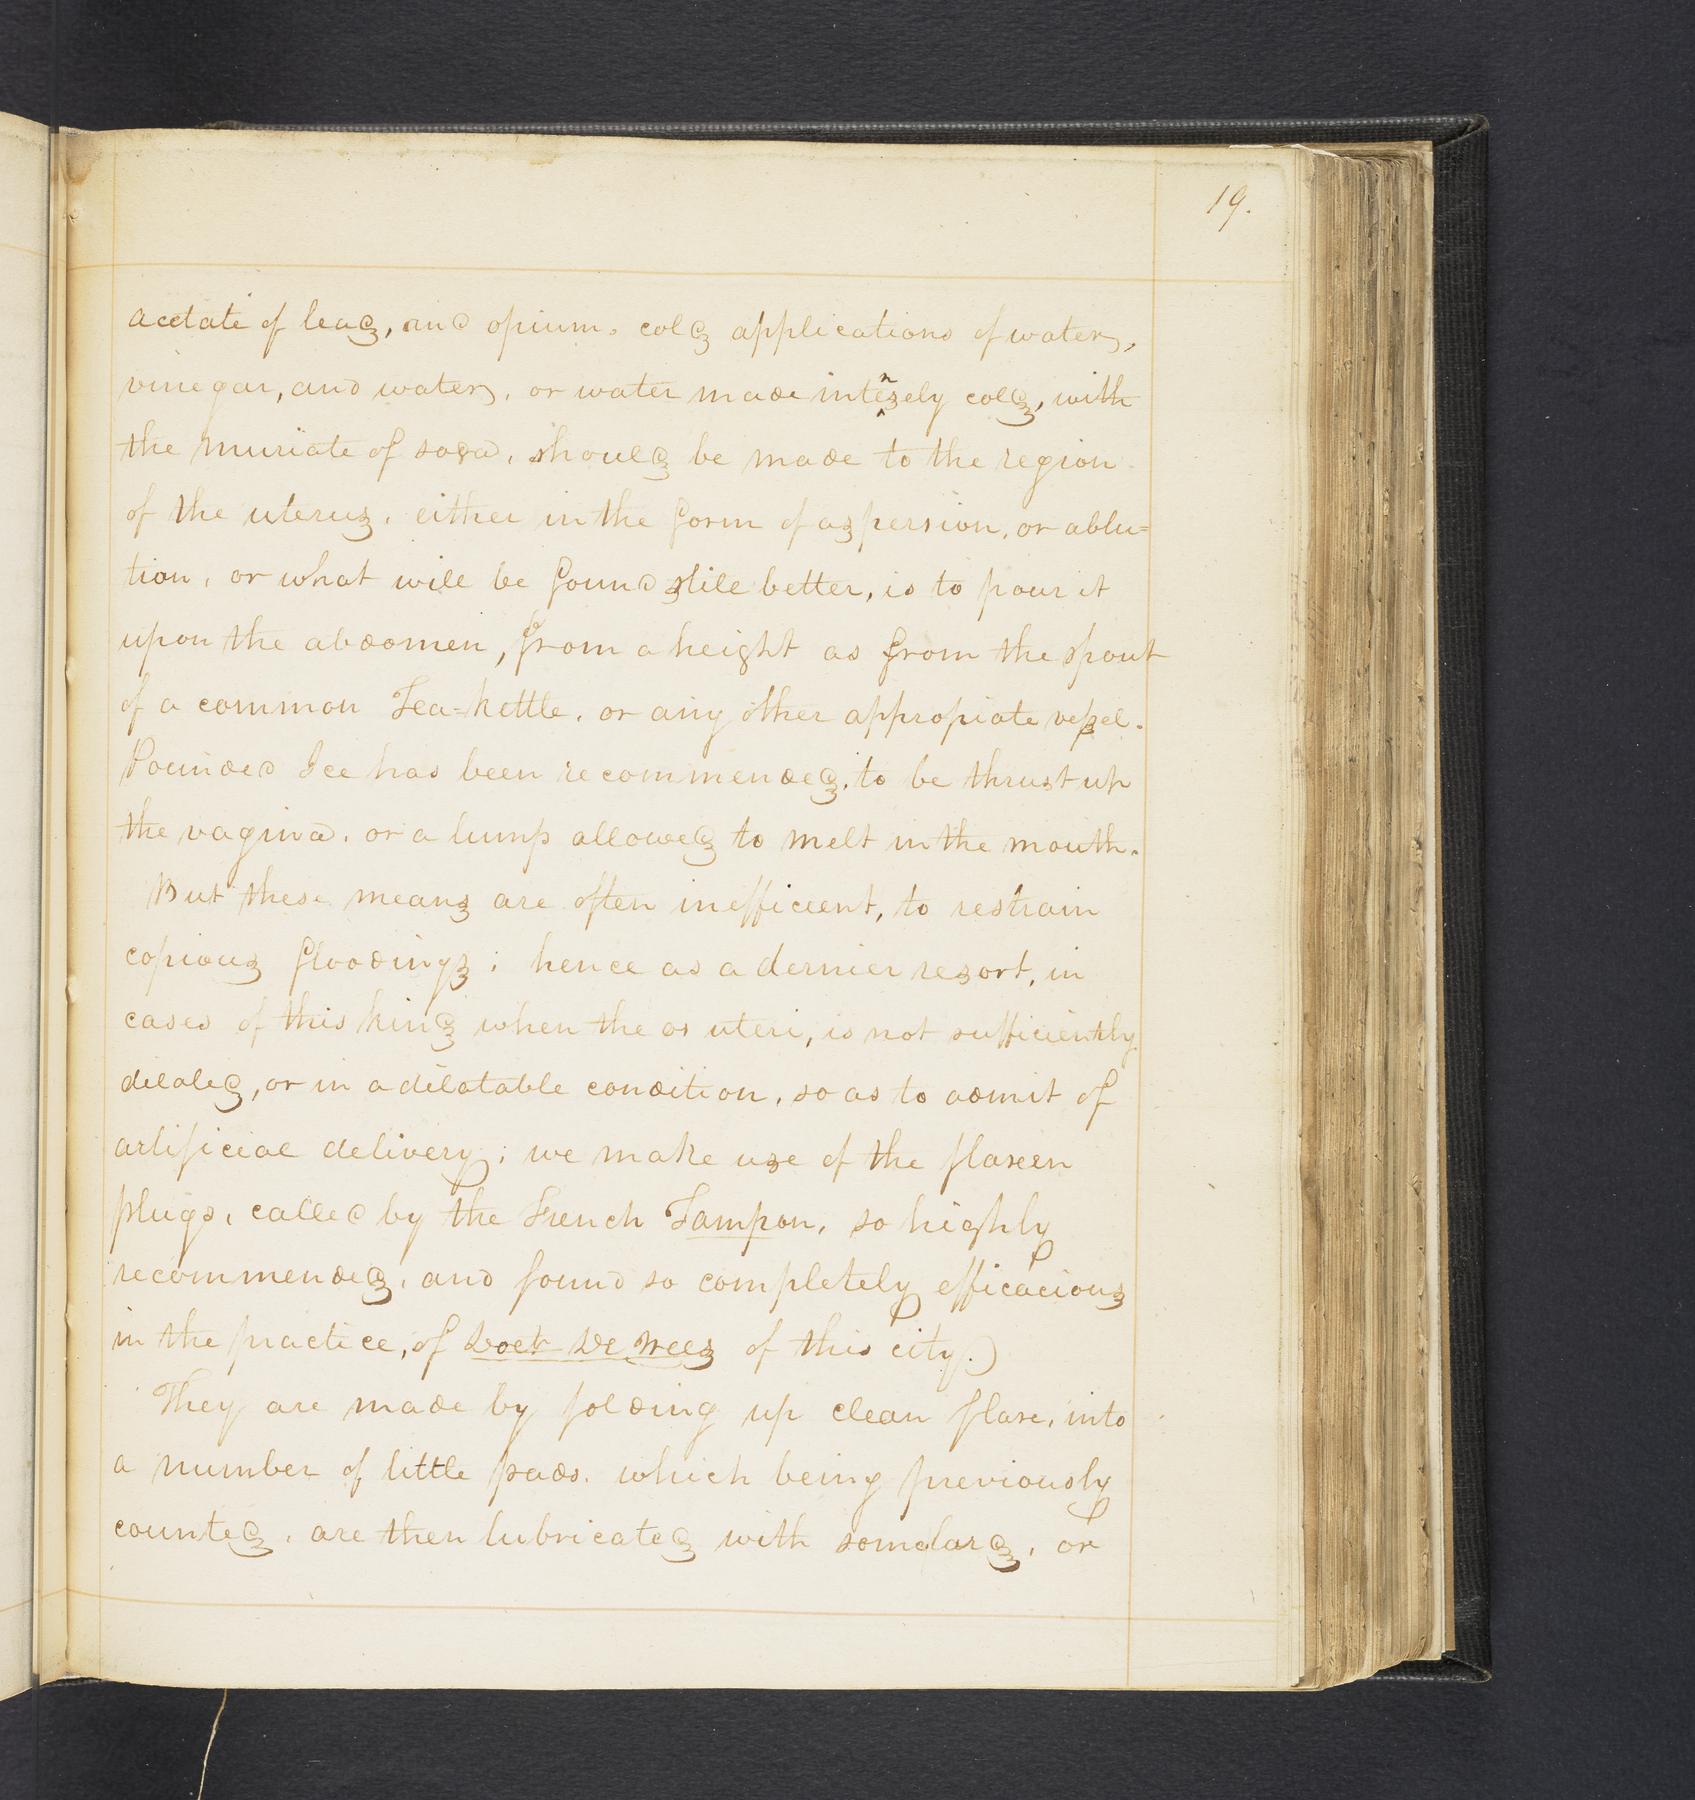 19.
acetate of lead, and opium. cold applications of water,
vinegar, and water, or water made intensely cold, with
the muriate of soda, should be made to the region
of the uterus, either in the form of aspersion, or ablu=
tion, or what will be found still better, is to pour it
upon the abdomen, from a height as from the spout
of a common Tea=kettle, or any other appropiate vessel.
Pounded Ice has been recommended, to be thrust up
the vagina, or a lump allowed to melt in the mouth.
But these means are often inefficient, to restrain
copious floodings; hence as a dernier resort, in
cases of this kind when the os uteri, is not sufficiently
dilated, or in a dilatable condition, so as to admit of
artificial delivery; we make use of the flaxen
plugs, called by the French Tampon, so highly
recommended, and found so completely efficacious
in the practice, of Doct Dewees of this city.)
They are made by folding up clean flax, into
a number of little pads, which being previously
counted, are then lubricated with some lard, or